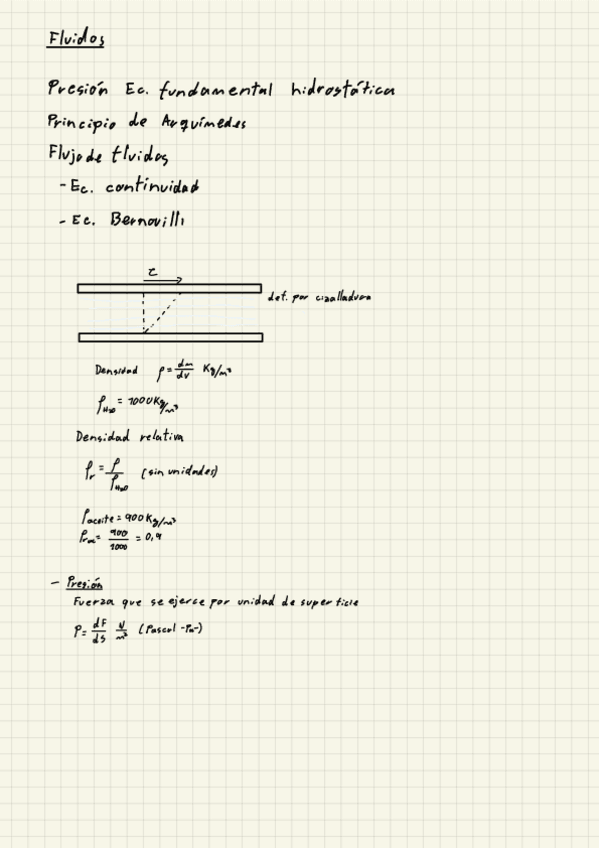 Fluidos
Presión Ec. fundamental hidrostática
Principio de Arquímedes
Flujo de fluidos
- Ec. continuidad
- Ec. Bernoulli
τ
def. por cizalladura
Densidad ρ = dm/dv Kg/m³
ρH₂O = 1000 Kg/m³
Densidad relativa
ρr = ρ/ρH₂O (sin unidades)
ρaceite = 900 Kg/m³
ρrac = 900/1000 = 0,9
- Presión
Fuerza que se ejerce por unidad de superficie
P = dF/dS N/m² (Pascal -Pa-)